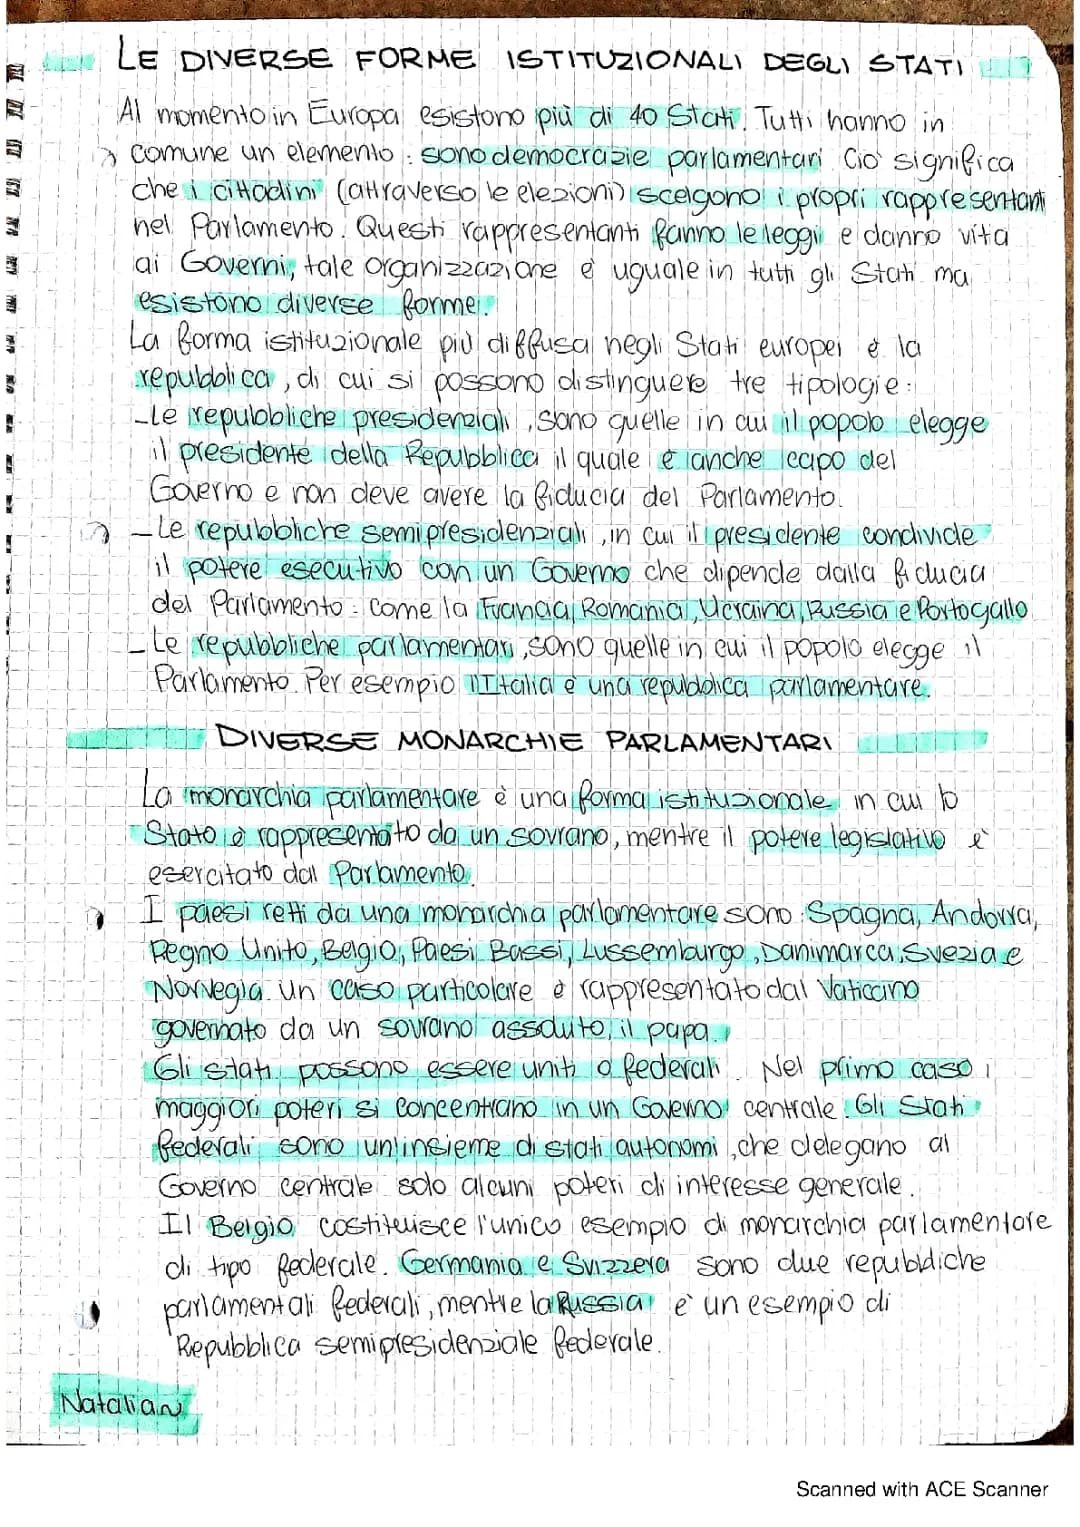 LE DIVERSE FORME ISTITUZIONALI DEGLI STATI
Al momento in Europa esistono più di 40 Stati. Tutti hanno in
comune un elemento: sono democrazie parlamentari. Ciò significa
che i cittadini (attraverso le elezioni) scelgono i propri rappresentanti
nel Parlamento. Questi rappresentanti fanno le leggi e danno vita
ai Governi, tale organizzazione è uguale in tutti gli Stati ma
esistono diverse forme.
La forma istituzionale più diffusa negli Stati europei è la
repubblica, di cui si possono distinguere tre tipologie:
-Le repubbliche presidenziali, sono quelle in cui il popolo elegge
il presidente della Repubblica il quale è anche capo del
Governo e non deve avere la fiducia del Parlamento.
-Le repubbliche semipresidenziali, in cui il presidente condivide
il potere esecutivo con un Governo che dipende dalla fiducia
del Parlamento: come la Francia, Romania, Ucraina, Russia e Portogallo
-Le repubbliche parlamentari, sono quelle in cui il popolo elegge il
Parlamento. Per esempio l'Italia è una repubblica parlamentare.
DIVERSE MONARCHIE PARLAMENTARI
La monarchia parlamentare è una forma istituzionale in cui lo
Stato è rappresentato da un sovrano, mentre il potere legislativo è
esercitato dal Parlamento.
I paesi retti da una monarchia parlamentare sono: Spagna, Andorra,
Regno Unito, Belgio, Paesi Bassi, Lussemburgo, Danimarca, Svezia e
Norvegia. Un caso particolare è rappresentato dal Vaticano
governato da un sovrano assoluto, il papa.
Gli stati possono essere uniti o federali. Nel primo caso i
maggiori poteri si concentrano in un Governo centrale. Gli Stati
federali sono un'insieme di stati autonomi, che delegano al
Governo centrale solo alcuni poteri di interesse generale.
Il Belgio costituisce l'unico esempio di monarchia parlamentare
di tipo federale. Germania e Svizzera sono due repubbliche
parlamentali federali, mentre la Russia è un esempio di
Repubblica semipresidenziale federale.
Natalian
Scanned with ACE Scanner